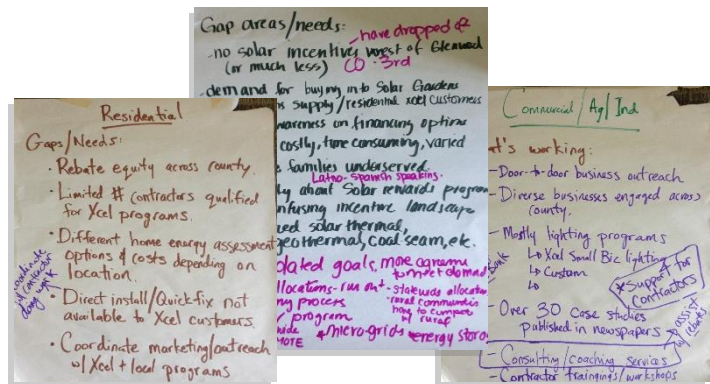 Residential
Gaps/Needs:
· Rebate equity across county.
· Limited # contractors qualified
for Xcel programs.
· Different home energy assessment
options & costs depending on
location.
· Direct install/Quickfix not
available to Xcel customers.
· Coordinate marketing/outreach
w/ Xcel + local programs
coordinate
w/ contractor
doing work
Gap areas/needs:
have dropped off
- no solar incentives west of Glenwood
(or much less) CO · 3rd
- demand for buying into Solar Gardens
supply/residential xcel customers
awareness on financing options
costly, time consuming, varied
families underserved.
Latno-spanish speaking.
about Solar rewards program
confusing incentive landscape
solar thermal,
geothermal, coal seam, etc.
goals, more
allocations - run out - statewide allocation
process - rural communities
program how to compete
w/ rural
* micro-grids * energy storage
Commercial/Ag/Ind
what's working:
- Door-to-door business outreach
- Diverse businesses engaged across
county.
- Mostly lighting programs
↳ Xcel Small Biz lighting
↳ Custom
↳
* Support for
contractors
- Over 30 case studies
published in newspapers
assist
w/ rebates
- Consulting/coaching services
- Contractor trainings/workshops